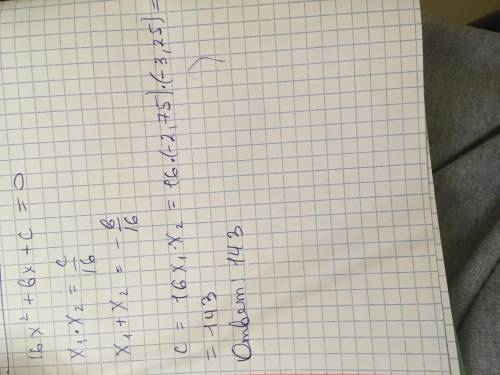 16x² + bx + c = 0
x₁·x₂ = c/16
x₁ + x₂ = -b/16
c = 16x₁·x₂ = 16·(-2,75)·(-3,25) =
= 143
Ответ: 143